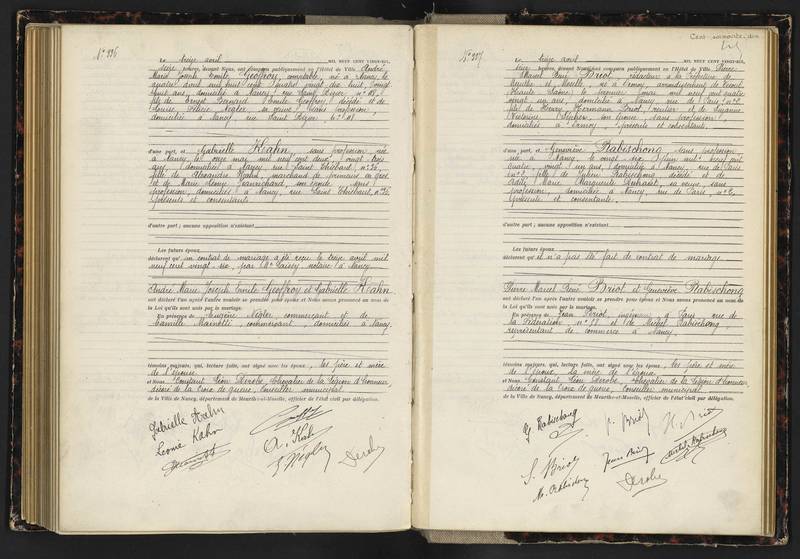 N° 236
Le treize avril MIL NEUF CENT VINGT-SIX,
seize heures, devant Nous, ont comparu publiquement en l'Hôtel de Ville André
Marie Joseph Emile Geoffroy, comptable, né à Nancy le
quatre avril mil huit cent quatre vingt dix huit, vingt
huit ans, domicilié à Nancy, rue Saint Dizier n° 68,
fils de Ernest Bernard Emile Geoffroy, décédé et de
Louise Nègler, sa veuve, sans profession,
domiciliée à Nancy rue Saint Dizier n° 68
d'une part, et Gabrielle Kahn, sans profession, née
à Nancy le onze mai mil neuf cent deux, vingt trois
ans, domiciliée à Nancy rue Saint Thiébaut n° 36,
fille de Alexandre Kahn, marchand de primeurs en gros
et de Marie Léonie Jeanrichard, son épouse, sans
profession, domiciliés à Nancy, rue Saint Thiébaut n° 36,
présents et consentants
d'autre part ; aucune opposition n'existant
Les futurs époux
déclarent qu'un contrat de mariage a été reçu le treize avril mil
neuf cent vingt-six, par Me Saissy, notaire à Nancy
André Marie Joseph Emile Geoffroy et Gabrielle Kahn
ont déclaré l'un après l'autre vouloir se prendre pour époux et Nous avons prononcé au nom de
la Loi qu'ils sont unis par le mariage.
En présence de Eugène Nègler commerçant et de
Camille commerçant, domiciliés à Nancy
témoins majeurs, qui, lecture faite, ont signé avec les époux, les père et mère
de l'épouse
et Nous, Constant Léon Dérobe, Chevalier de la Légion d'honneur
décoré de la Croix de guerre, Conseiller municipal
de la Ville de Nancy, département de Meurthe-et-Moselle, officier de l'état civil par délégation.
Gabrielle Kahn
Léonie Kahn
A. Kahn
E. Nègler
Derobe
N° 237
Le treize avril MIL NEUF CENT VINGT-SIX,
seize heures, devant Nous, ont comparu publiquement en l'Hôtel de Ville Pierre
Marcel René Briot, rédacteur à la Préfecture de
Meurthe et Moselle, né à arrondissement de
Haute Saône, le mai mil neuf cent quatre
vingt un ans, domicilié à Nancy, rue de Paris n° 2
fils de Pierre Hermann Briot, rentier et de Suzanne
Victorine son épouse, sans profession,
domiciliés à présents et consentants
d'une part, et Geneviève Rabischong, sans profession,
née à Nancy le vingt six juin mil neuf cent
quatre, vingt un ans, domiciliée à Nancy, rue de Paris
n° 2, fille de Julien Rabischong, décédé et de
Adèle Marie Marguerite sa veuve, sans
profession, domiciliée à Nancy, rue de Paris, n° 2,
présente et consentante
d'autre part ; aucune opposition n'existant
Les futurs époux
déclarent qu'il n'a pas été fait de contrat de mariage
Pierre Marcel René Briot et Geneviève Rabischong
ont déclaré l'un après l'autre vouloir se prendre pour époux et Nous avons prononcé au nom de
la Loi qu'ils sont unis par le mariage.
En présence de Jean Briot, ingénieur à Paris, rue de
la Fédération n° et de Michel Rabischong,
représentant de commerce à Nancy
témoins majeurs, qui, lecture faite, ont signé avec les époux, les père et mère
de l'époux, la mère de l'épouse
et Nous, Constant Léon Dérobe, Chevalier de la Légion d'honneur
décoré de la Croix de guerre, Conseiller municipal
de la Ville de Nancy, département de Meurthe-et-Moselle, officier de l'état civil par délégation.
G. Rabischong
P. Briot
H. Briot
S. Briot
Jean Briot
Michel Rabischong
M. Rabischong
Derobe